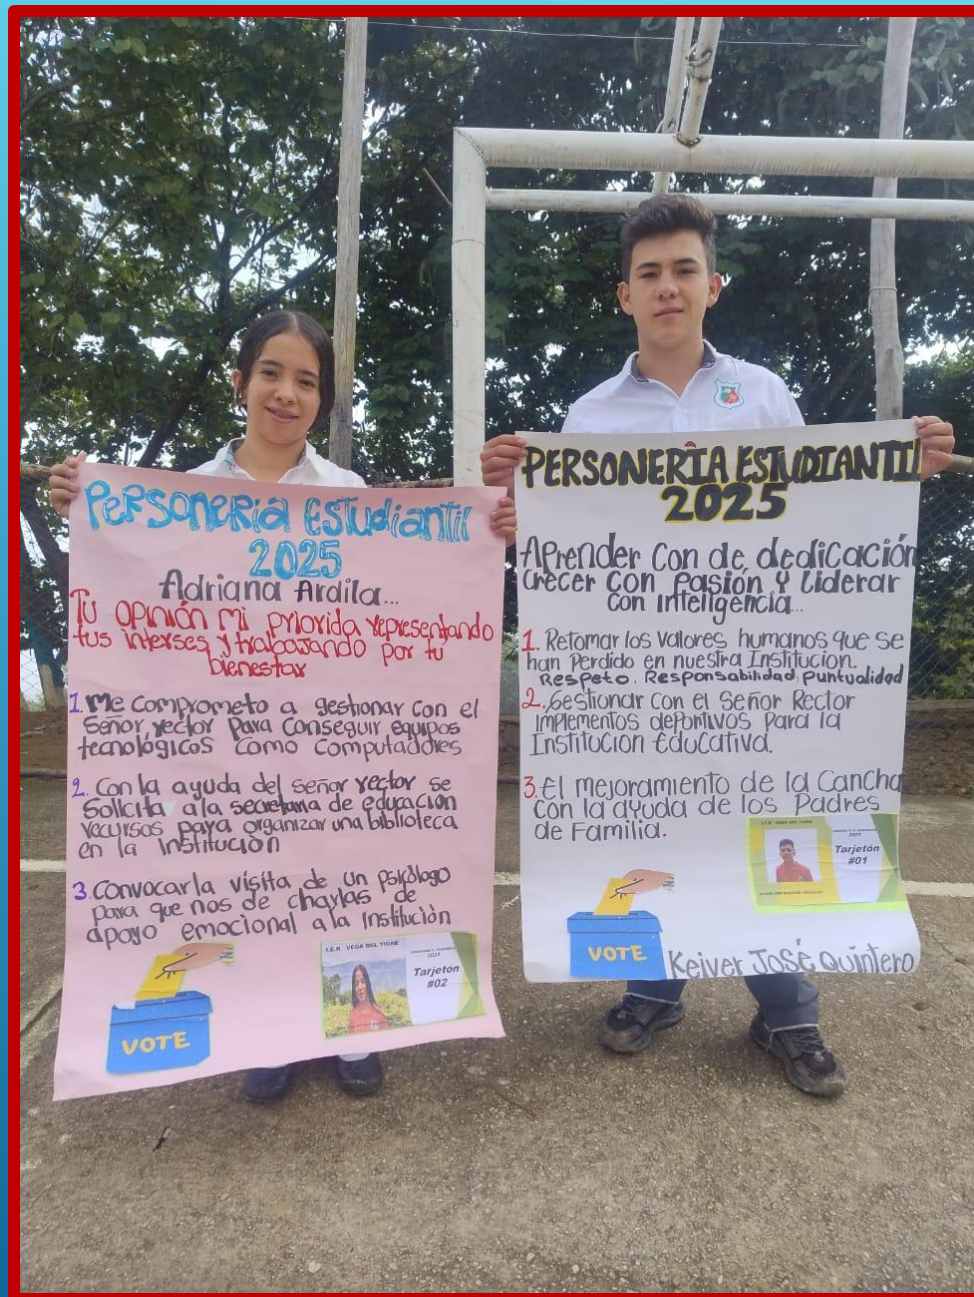 Personeria Estudiantil
2025
Adriana Ardila...
Tu opinión mi priorida representando
tus interses y trabajando por tu
bienestar
1. Me comprometo a gestionar con el
Señor rector para conseguir equipos
tecnológicos como computadores
2. Con la ayuda del señor rector se
solicita a la secretaria de educación
recursos para organizar una biblioteca
en la institución
3. Convocar la visita de un psicólogo
para que nos de charlas de
apoyo emocional a la institución
VOTE
I.E.R. VEGA DEL TIGRE
2025
Tarjetón
#02
PERSONERÍA ESTUDIANTIL
2025
Aprender con de, dedicación
Crecer con Pasión y Liderar
con inteligencia...
1. Retomar los valores humanos que se
han Perdido en nuestra Institucion.
Respeto. Responsabilidad, puntualidad
2. Gestionar con el Señor Rector
implementos deportivos Para la
Institucion Educativa.
3. El mejoramiento de la Cancha
con la ayuda de los Padres
de Familia.
I.E.R. VEGA DEL TIGRE
2025
Tarjetón
#01
VOTE
Keiver José Quintero